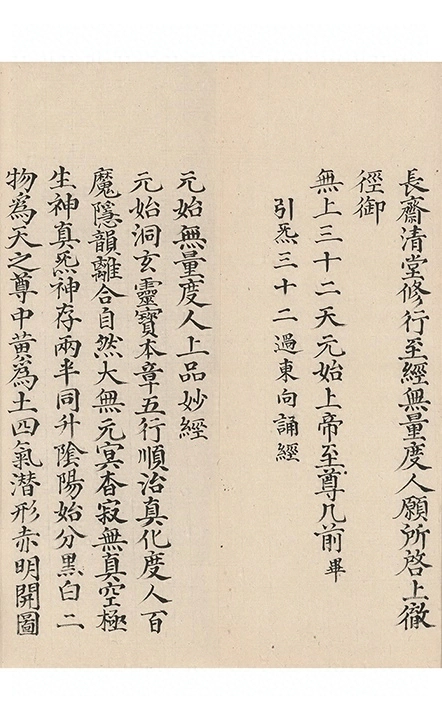 長齋清堂修行至經無量度人願所啓上徹
徑御
無上三十二天元始上帝至尊几前畢
引炁三十二過東向誦經
元始無量度人上品妙經
元始洞玄靈寶本章五行順治真化度人百
魔隱韻離合自然大無元冥杳寂無真空極
生神真炁神存兩半同升陰陽始分黑白二
物為天之尊中黃為土四氣潜形赤明開圖